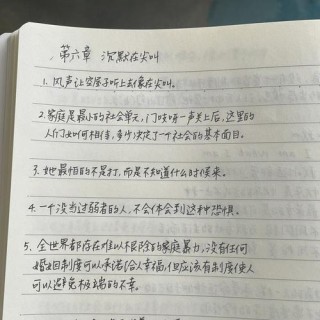 第六章 沉默在尖叫
1. 风声让空屋子听上去像在尖叫。
2. 家庭是最小的社会单元，门吱呀一声关上后，这里的
人们如何相待，多少决定了一个社会的基本面目。
3. 她最怕的不是打，而是不知道什么时候来。
4. 一个没当过弱者的人，不会体会到这种恐惧。
5. 全世界都存在难以根除的家庭暴力，没有任何
婚姻制度可以承诺给人幸福，但应该有制度使人
可以避免极端的不幸。